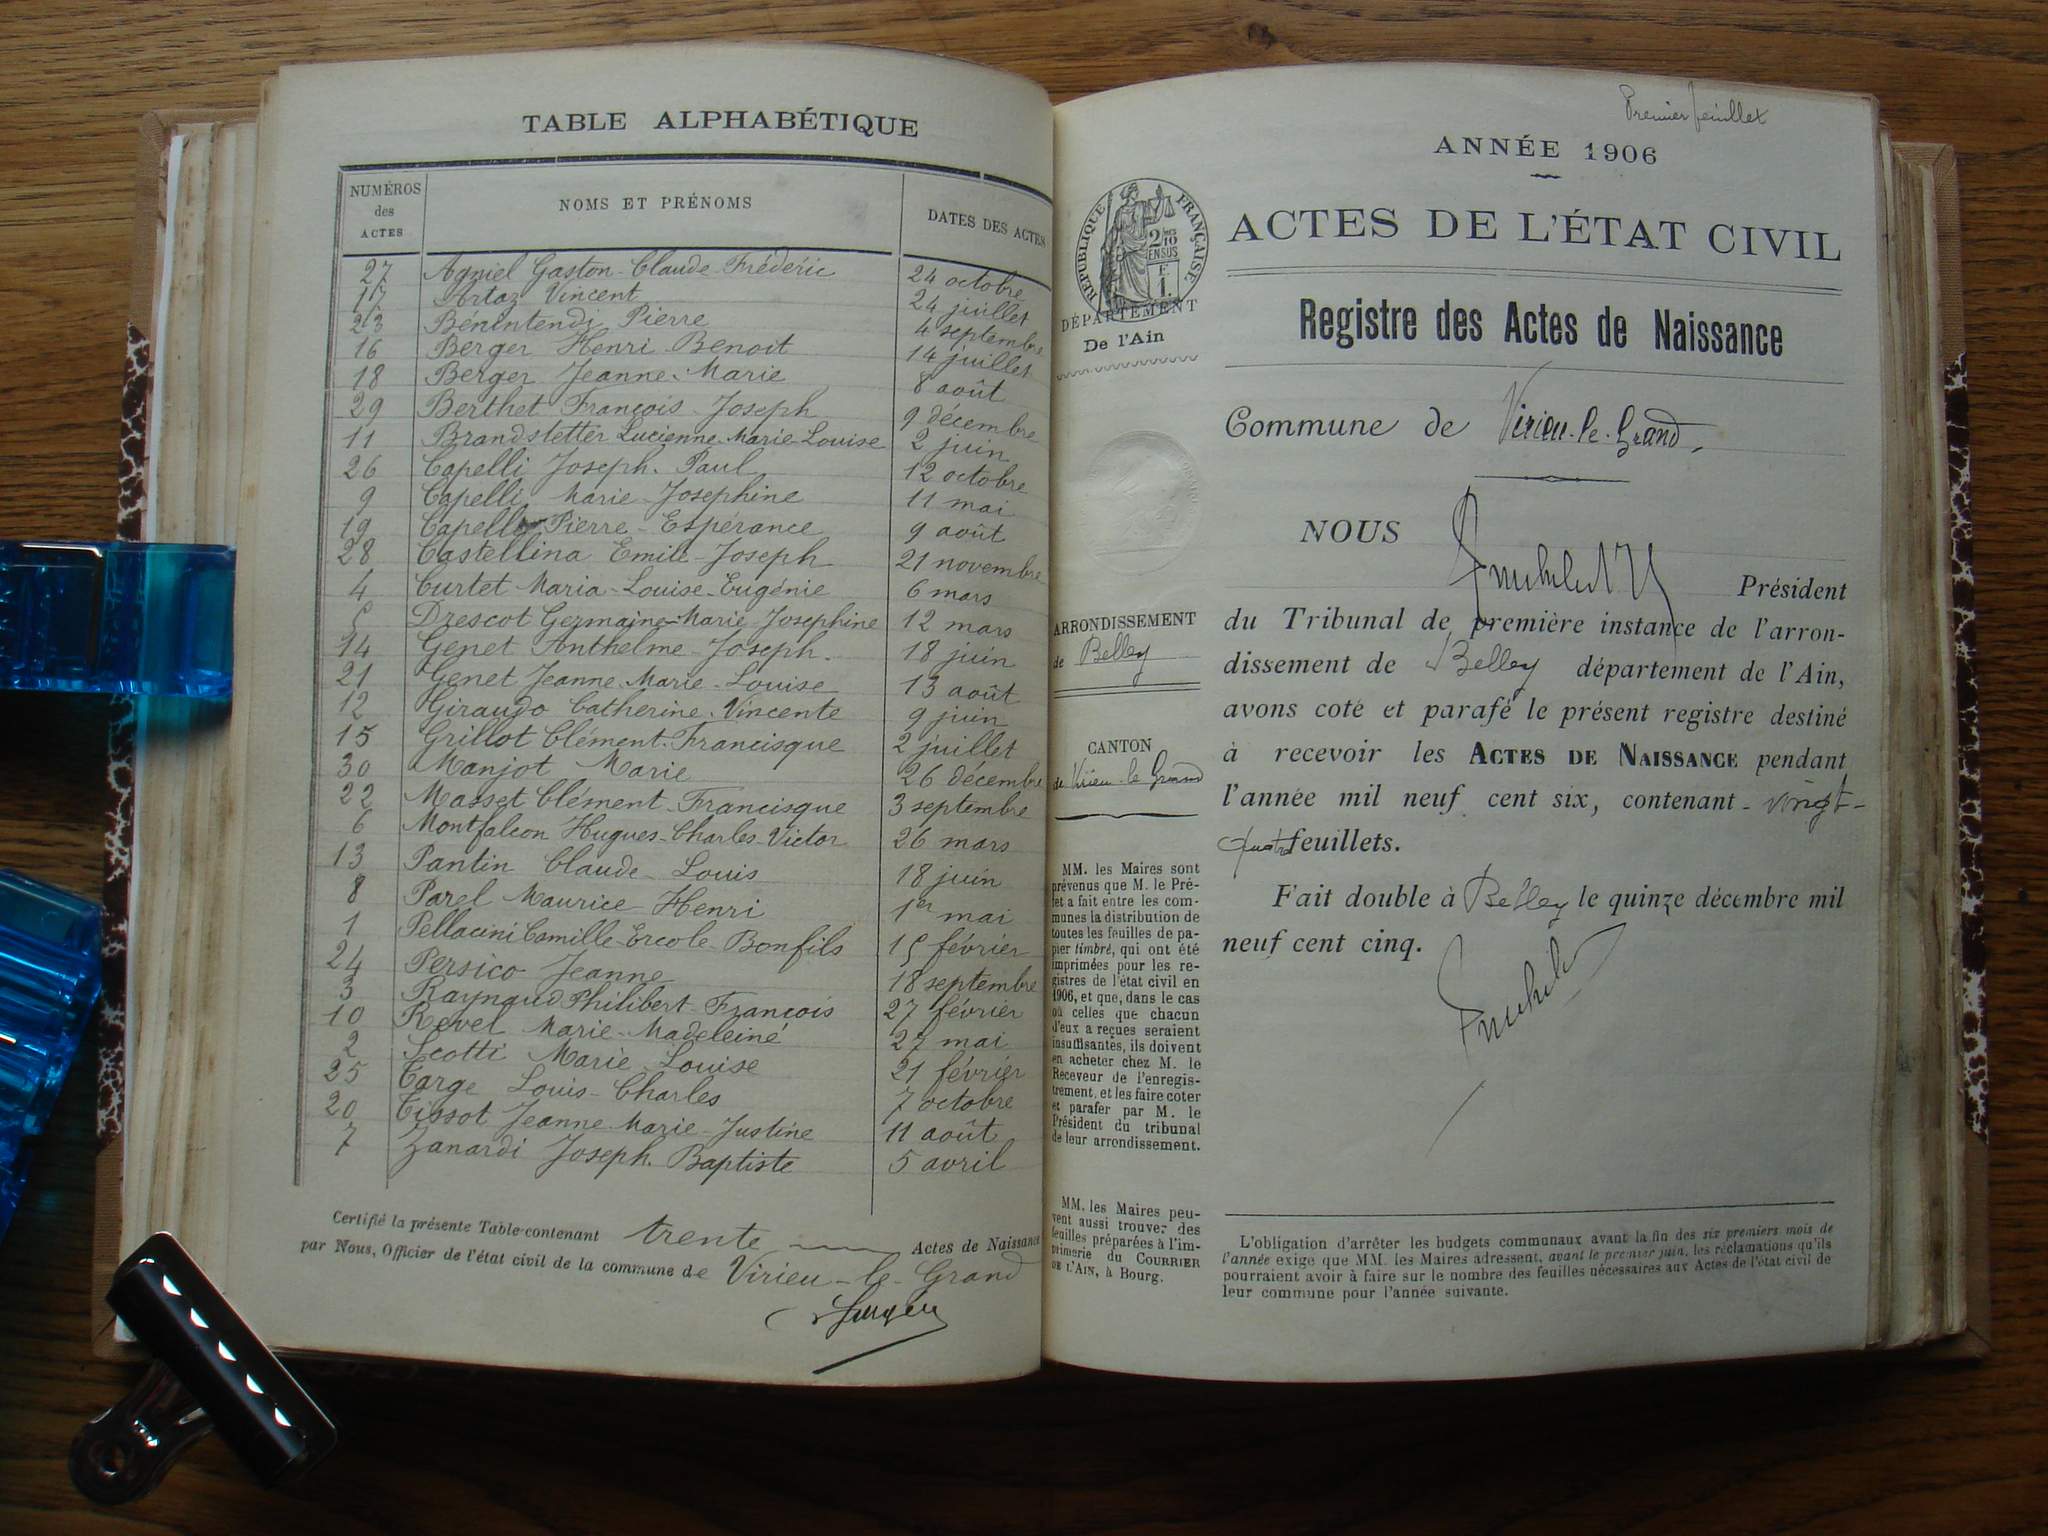 TABLE ALPHABÉTIQUE
NUMÉROS des ACTES NOMS ET PRÉNOMS DATES DES ACTES
27 Agniel Gaston-Claude-Fréderic 24 octobre
17 Artaz Vincent 24 juillet
23 Bénintendi Pierre 4 septembre
16 Berger Henri-Benoit 14 juillet
18 Berger Jeanne-Marie 8 août
29 Berthet François-Joseph 9 décembre
11 Brandstetter Lucienne-Marie-Louise 2 juin
26 Capelli Joseph-Paul 12 octobre
9 Capelli Marie-Josephine 11 mai
19 Capello Pierre-Espérance 9 août
28 Castellina Emile-Joseph 21 novembre
4 Curtet Maria-Louise-Eugénie 6 mars
5 Drescot Germaine-Marie-Josephine 12 mars
14 Genet Anthelme-Joseph. 18 juin
21 Genet Jeanne-Marie-Louise 13 août
12 Giraudo Catherine-Vincente 9 juin
15 Grillot Clément-Francisque 2 juillet
30 Manjot Marie 26 décembre
22 Masset Clément-Francisque 3 septembre
6 Montfalcon Hugues-Charles-Victor 26 mars
13 Pantin Claude-Louis 18 juin
8 Parel Maurice-Henri 1er mai
1 Pellacini Camille-Ercole-Bonfils 15 février
24 Persico Jeanne 18 septembre
3 Raynaud Philibert-François 27 février
10 Revel Marie-Madeleine 27 mai
2 Scotti Marie-Louise 21 février
25 Targe Louis-Charles 7 octobre
20 Tissot Jeanne-Marie-Justine 11 août
7 Zanardi Joseph-Baptiste 5 avril
Certifié la présente Table contenant trente Actes de Naissance
par Nous, Officier de l'état civil de la commune de Virieu-le-Grand
Premier feuillet
ANNÉE 1906
ACTES DE L'ÉTAT CIVIL
RÉPUBLIQUE FRANÇAISE
2/10 EN SUS
F
1.
DÉPARTEMENT
De l'Ain
Registre des Actes de Naissance
Commune de Virieu-le-Grand,
NOUS
Président
du Tribunal de première instance de l'arron-
dissement de Belley département de l'Ain,
avons coté et parafé le présent registre destiné
à recevoir les ACTES DE NAISSANCE pendant
l'année mil neuf cent six, contenant - vingt-
quatre feuillets.
Fait double à Belley le quinze décembre mil
neuf cent cinq.
ARRONDISSEMENT
de Belley
CANTON
de Virieu-le-Grand
MM. les Maires sont
prévenus que M. le Pré-
fet a fait entre les com-
munes la distribution de
toutes les feuilles de pa-
pier timbré, qui ont été
imprimées pour les re-
gistres de l'état civil en
1906, et que, dans le cas
où celles que chacun
d'eux a reçues seraient
insuffisantes, ils doivent
en acheter chez M. le
Receveur de l'enregis-
trement, et les faire coter
et parafer par M. le
Président du tribunal
de leur arrondissement.
MM. les Maires peu-
vent aussi trouver des
feuilles préparées à l'im-
primerie du COURRIER
DE L'AIN, à Bourg.
L'obligation d'arrêter les budgets communaux avant la fin des six premiers mois de
l'année exige que MM. les Maires adressent, avant le premier juin, les réclamations qu'ils
pourraient avoir à faire sur le nombre des feuilles nécessaires aux Actes de l'état civil de
leur commune pour l'année suivante.